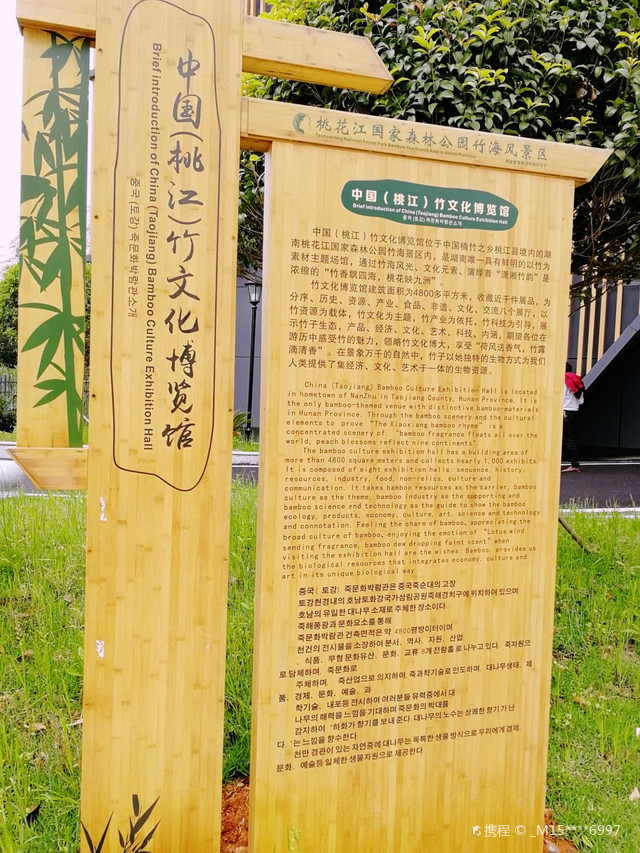 中国(桃江)竹文化博览馆
Brief introduction of China (Taojiang) Bamboo Culture Exhibition Hall
중국 (토강) 죽문화박람관소개
桃花江国家森林公园竹海风景区
Taohuajiang National Forest Park Bamboo Sea Area in Hunan Province
中国（桃江）竹文化博览馆
Brief introduction of China (Taojiang) Bamboo Culture Exhibition Hall
중국 (토강) 죽문화박람관소개
中国（桃江）竹文化博览馆位于中国楠竹之乡桃江县境内的湖
南桃花江国家森林公园竹海景区内，是湖南唯一具有鲜明的以竹为
素材主题场馆，通过竹海风光、文化元素、演绎着“潇湘竹韵”是
浓缩的“竹香飘四海，桃花映九洲”。
竹文化博览馆建筑面积为4800多平方米，收藏近千件展品，为
分序、历史、资源、产业、食品、非遗、文化、交流八个展厅，以
竹资源为载体，竹文化为主题，竹产业为依托，竹科技为引导，展
示竹子生态，产品、经济、文化、艺术、科技、内涵，期望各位在
游历中感受竹的魅力，领略竹文化博大，享受“荷风送香气，竹露
滴清香”。在景象万千的自然中，竹子以她独特的生物方式为我们
人类提供了集经济、文化、艺术于一体的生物资源。
China (Taojiang) Bamboo Culture Exhibition Hall is located
in hometown of NanZhu in Taojiang County, Hunan Province. It is
the only bamboo-themed venue with distinctive bamboo-materials
in Hunan Province. Through the bamboo scenery and the cultural
elements to prove "The Xiaoxiang bamboo rhyme" is a
concentrated scenery of "bamboo fragrance floats all over the
world, peach blossoms reflect nine continents"
The bamboo culture exhibition hall has a building area of
more than 4800 square meters and collects nearly 1,000 exhibits.
It is composed of eight exhibition halls: sequence, history,
resources, industry, food, non-relics, culture and
communication. It takes bamboo resources as the carrier, bamboo
culture as the theme, bamboo industry as the supporting and
bamboo science and technology as the guide to show the bamboo
ecology, products, economy, culture, art, science and technology
and connotation. Feeling the charm of bamboo, appreciating the
broad culture of bamboo, enjoying the emotion of "Lotus wind
sending fragrance, bamboo dew dropping faint scent" when
visiting the exhibition hall are the wishes. Bamboo, provides us
the biological resources that integrates economy, culture and
art in its unique biological way
중국 ( 토강) 죽문화박람관은 중국죽순대의 고장
토강현경내의 호남토화강국가삼림공원죽해경치구에 위치하여 있으며
호남의 유일한 대나무 소재로 주제한 장소이다
죽해풍광과 문화요소를 통해
죽문화박람관 건축면적은 약 4800평방미터이며
천건의 전시물을 소장하여 분서, 역사, 자원, 산업
, 식품, 무형 문화유산, 문화, 교류 8개 전람홀로 나누고있다. 죽자원으
로 담체하며, 죽문화로
주제하며, 죽산업으로 의지하며, 죽과학기술로 인도하며, 대나무생태, 제
품, 경제, 문화, 예술, 과
학기술, 내포등 전시하여 여러분들 유력중에서 대
나무의 매력을 느낌을 기대하며 죽문화의 박대를
감지하여 "하화가 향기를 보내 준다, 대나무의 노수는 상쾌한 향기가 난
다. "는 느낌을 향수한다.
천만 경관이 있는 자연중에 대나무는 독특한 생물 방식으로 우리에게 경제,
문화, 예술등 일체한 생물자원으로 제공한다.
携程 © _M15****6997